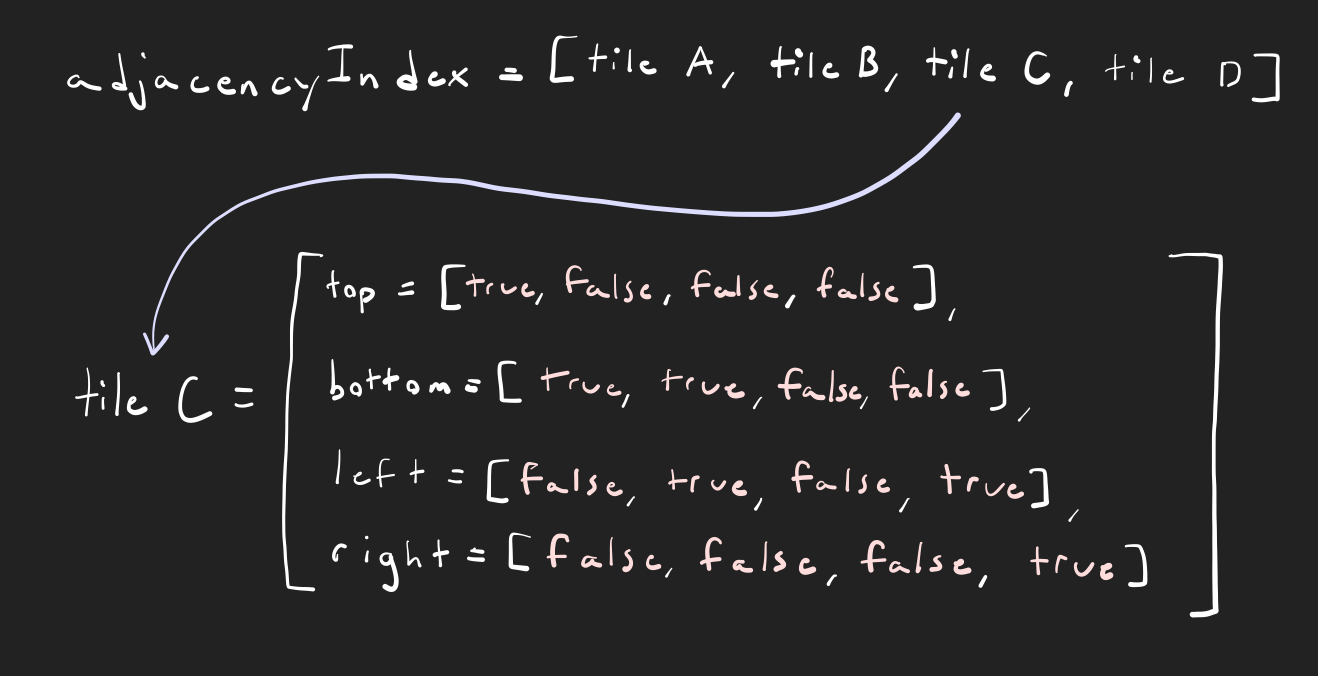 adjacencyIndex = [tile A, tile B, tile C, tile D]
tile C =
top = [true, false, false, false],
bottom = [true, true, false, false],
left = [false, true, false, true],
right = [false, false, false, true]